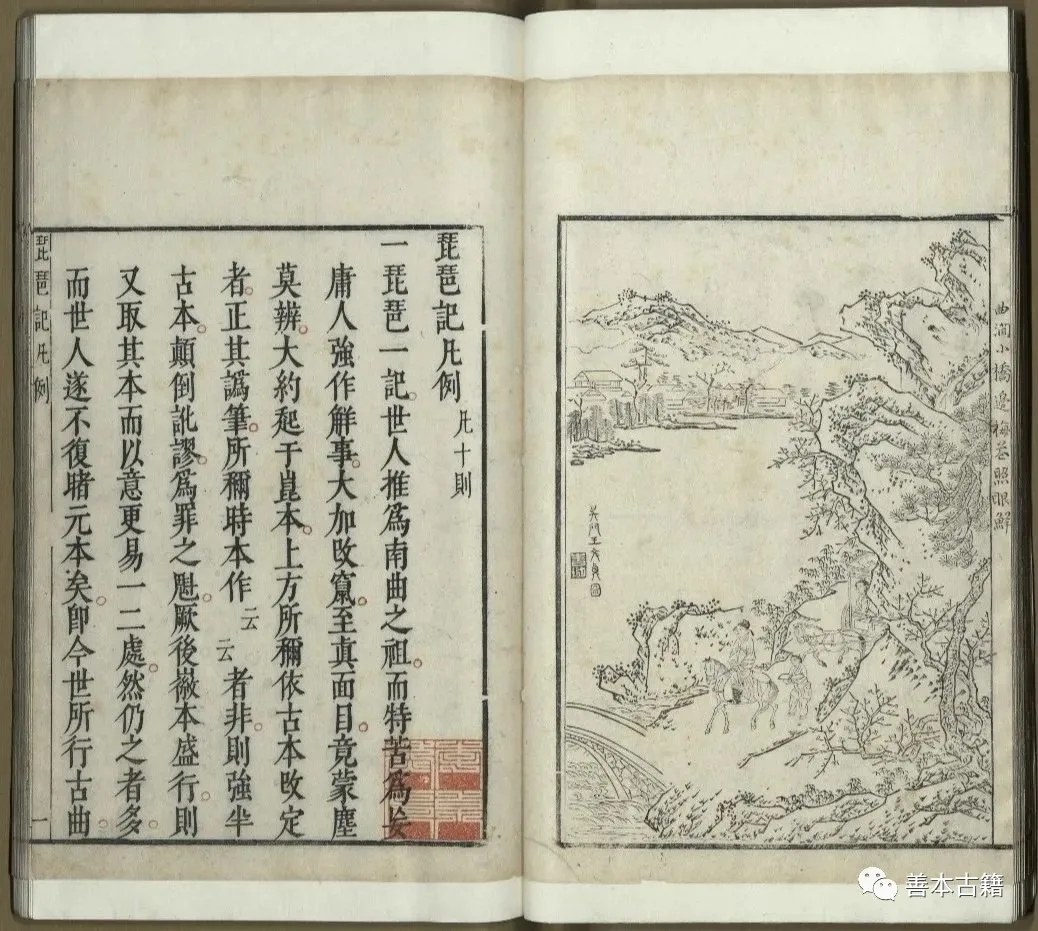 曲澗小橋邊梅花照眼鮮
吳門王文衡
琵琶記凡例 凡十則
一琵琶一記世人推爲南曲之祖而特苦爲妄
庸人強作解事大加改竄至真面目竟蒙塵
莫辨大約起于崑本上方所稱依古本改定
者正其譌筆所稱時本作云云者非則強半
古本顛倒訛謬爲罪之魁厥後徽本盛行則
又取其本而以意更易一二處然仍之者多
而世人遂不復睹元本矣卽今世所行古曲
琵琶記凡例
一
善本古籍